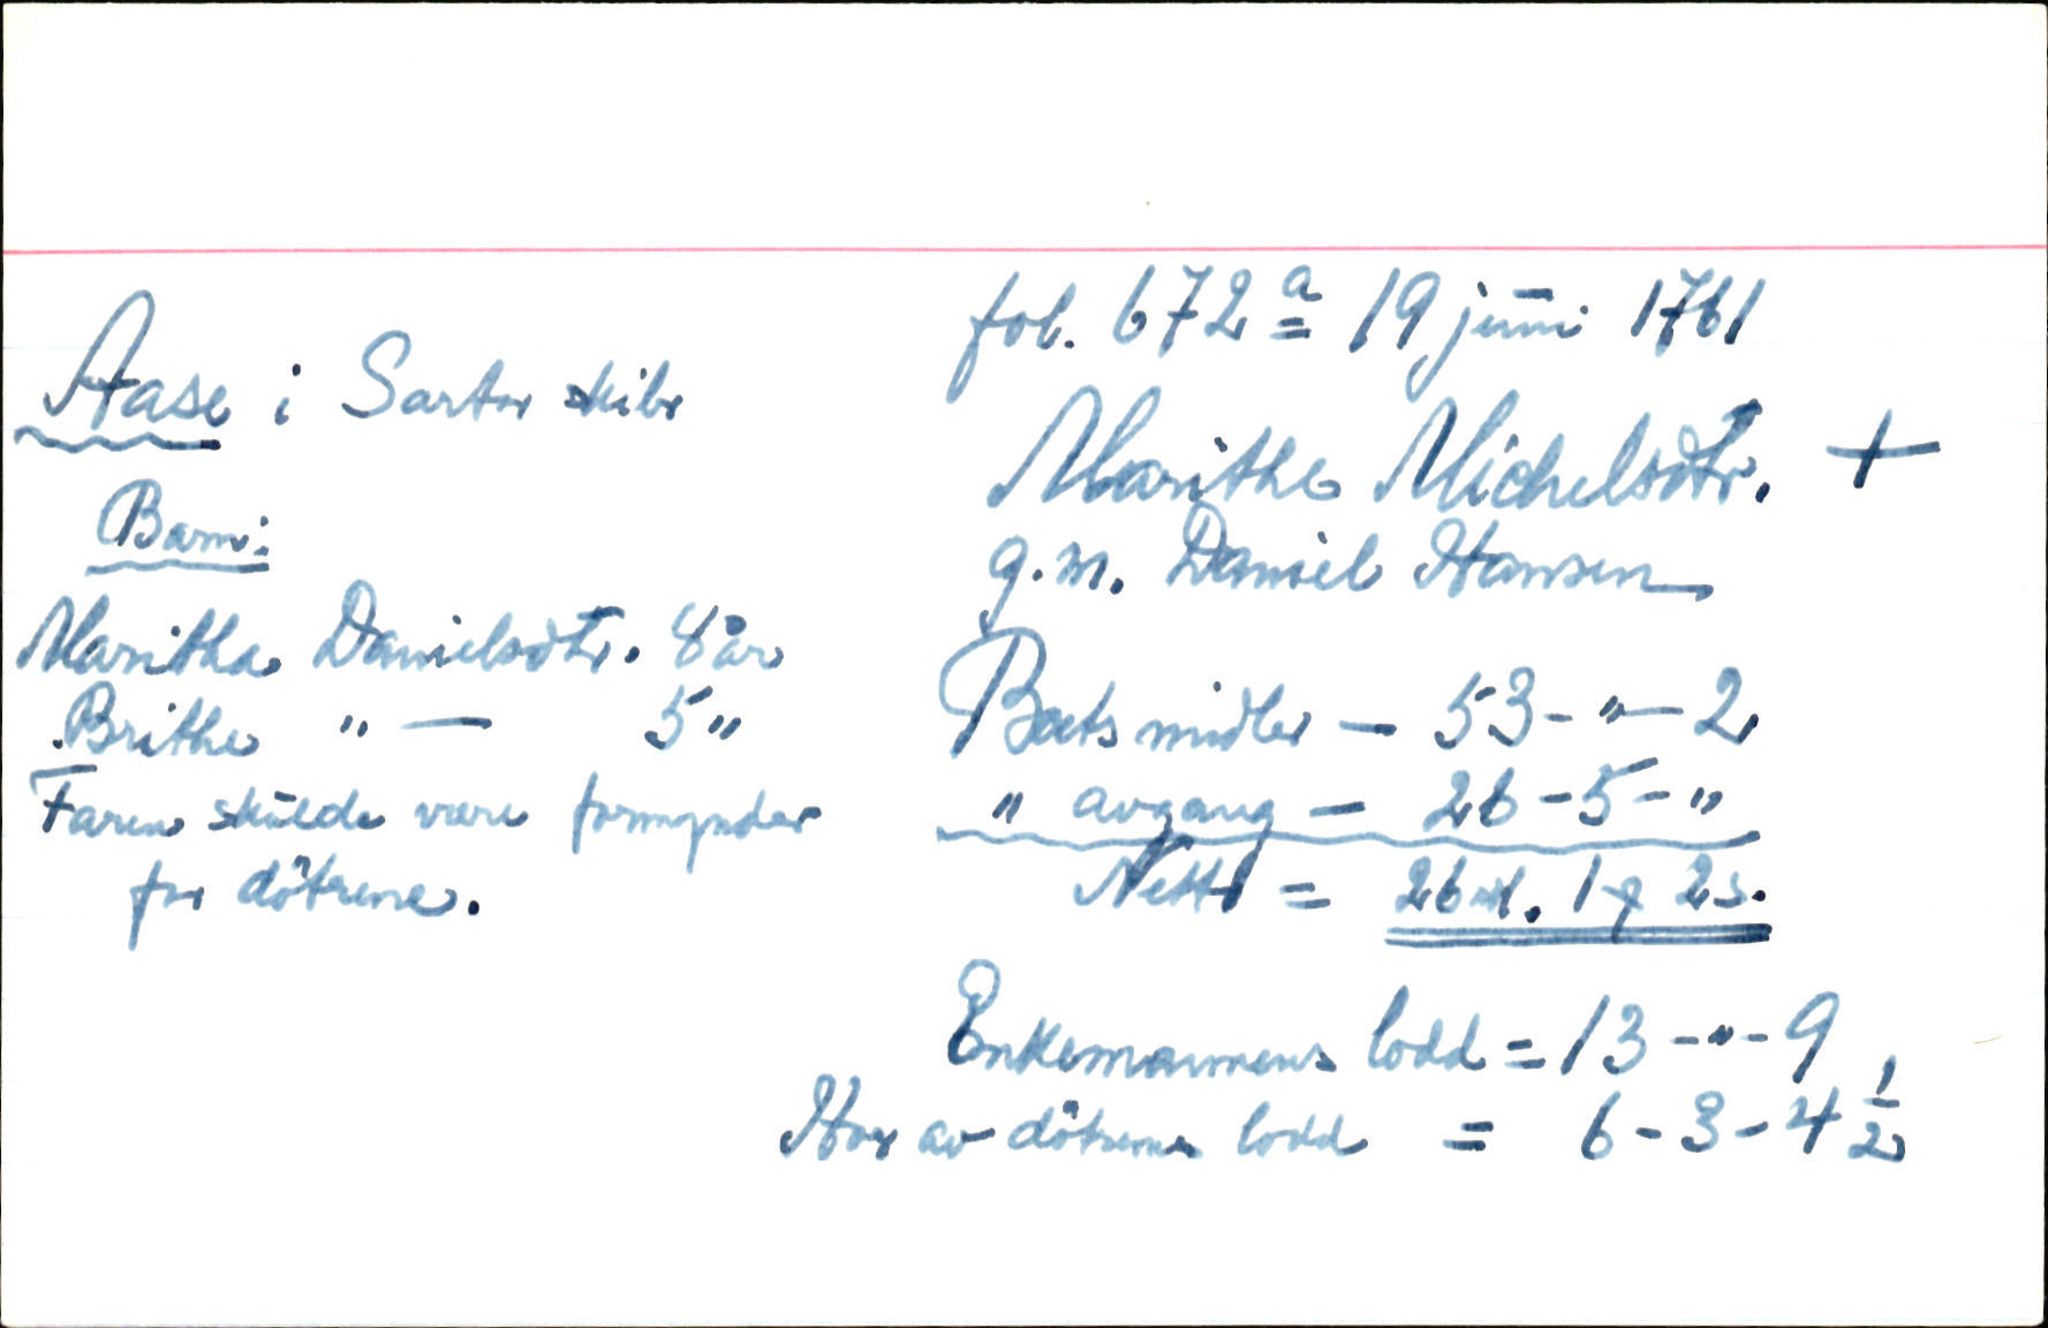 fol. 672 a 19 juni 1761
Aase i Sartor skibr
Marithe Michelsdtr. +
g.m. Daniel Hansen
Barn:
Maritha Danielsdtr. 8 år
Brithe " — 5 "
Faren skulde være formynder
for døtrene.
Boets midler — 53 - " — 2
" avgang — 26 - 5 - "
Netto = 26 rd. 1 ℳ 2 s.
Enkemannens lodd = 13 - " - 9
Hver av døtrenes lodd = 6 - 3 - 4 1/2